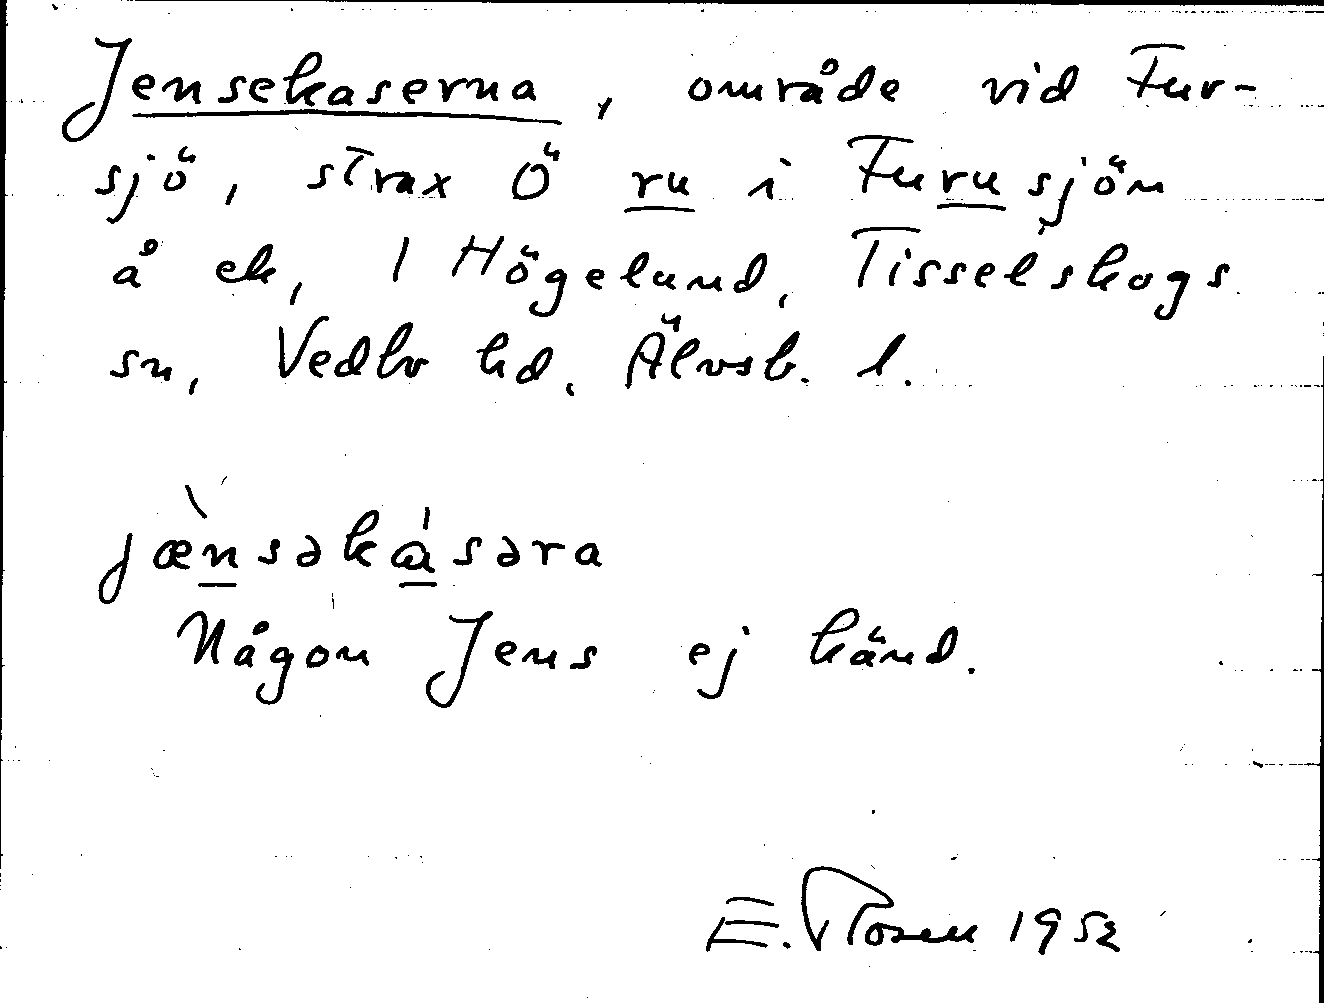 Jensekaserna, område vid Fur-
sjö, strax Ö ru i Furusjön
å ek, 1 Högelund, Tisselskogs
sn, Vedbo hd. Älvsb. l.
jæ̀nsəkɑ̍səra
Någon Jens ej känd.
E. Rosen 1952